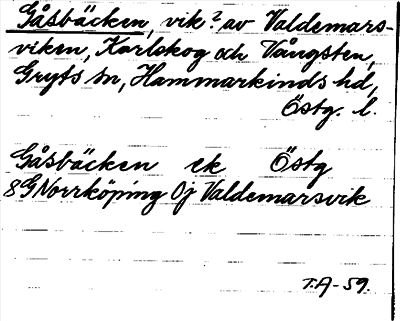 Gåsbäcken, vik? av Valdemars-
viken, Karlskog och Vångsten,
Gryts sn, Hammarkinds hd,
Östg. l.
Gåsbäcken ek Östg
8G Norrköping Oj Valdemarsvik
T.A-59.